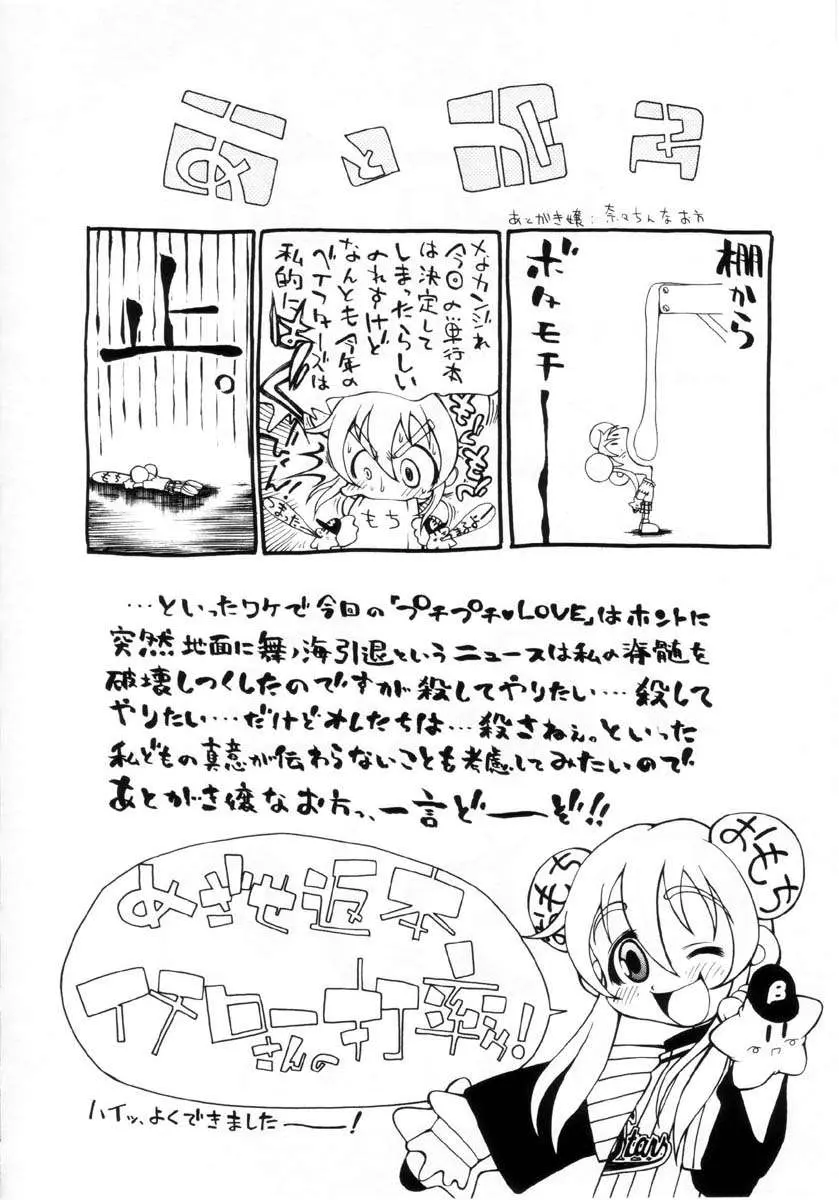 あとがき
あとがき嬢：奈々ちんなお方
棚から
ボタモチーー
なカンジれ
今回の単行本
は決定して
しまったらしい
のれすけど
なんとも今年の
ベイスターズは
私的に
もち
つまった
止。
もち
…といったワケで今回の「プチプチ♥LOVE」はホントに
突然地面に舞ノ海引退というニュースは私の脊髄を
破壊しつくしたのですが殺してやりたい…殺して
やりたい…だけどオレたちは…殺さねぇ。といった
私どもの真意が伝わらないことも考慮してみたいので
あとがき嬢なお方っ、一言どーーぞ!!
おもち
おもち
めざせ返本
イチローさんの打率ゥ!
B
Stars
ハイッ、よくできましたーー!